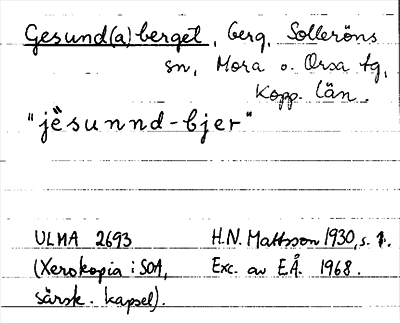 Gesund(a)berget, berg, Solleröns
sn, Mora o. Orsa tg,
Kopp. län.
"jèsunnd-bjer"
ULMA 2693 H.N. Mattsson 1930, s. 1.
(Xerokopia i SOA, Exc. av E.Å. 1968.
särsk. kapsel).